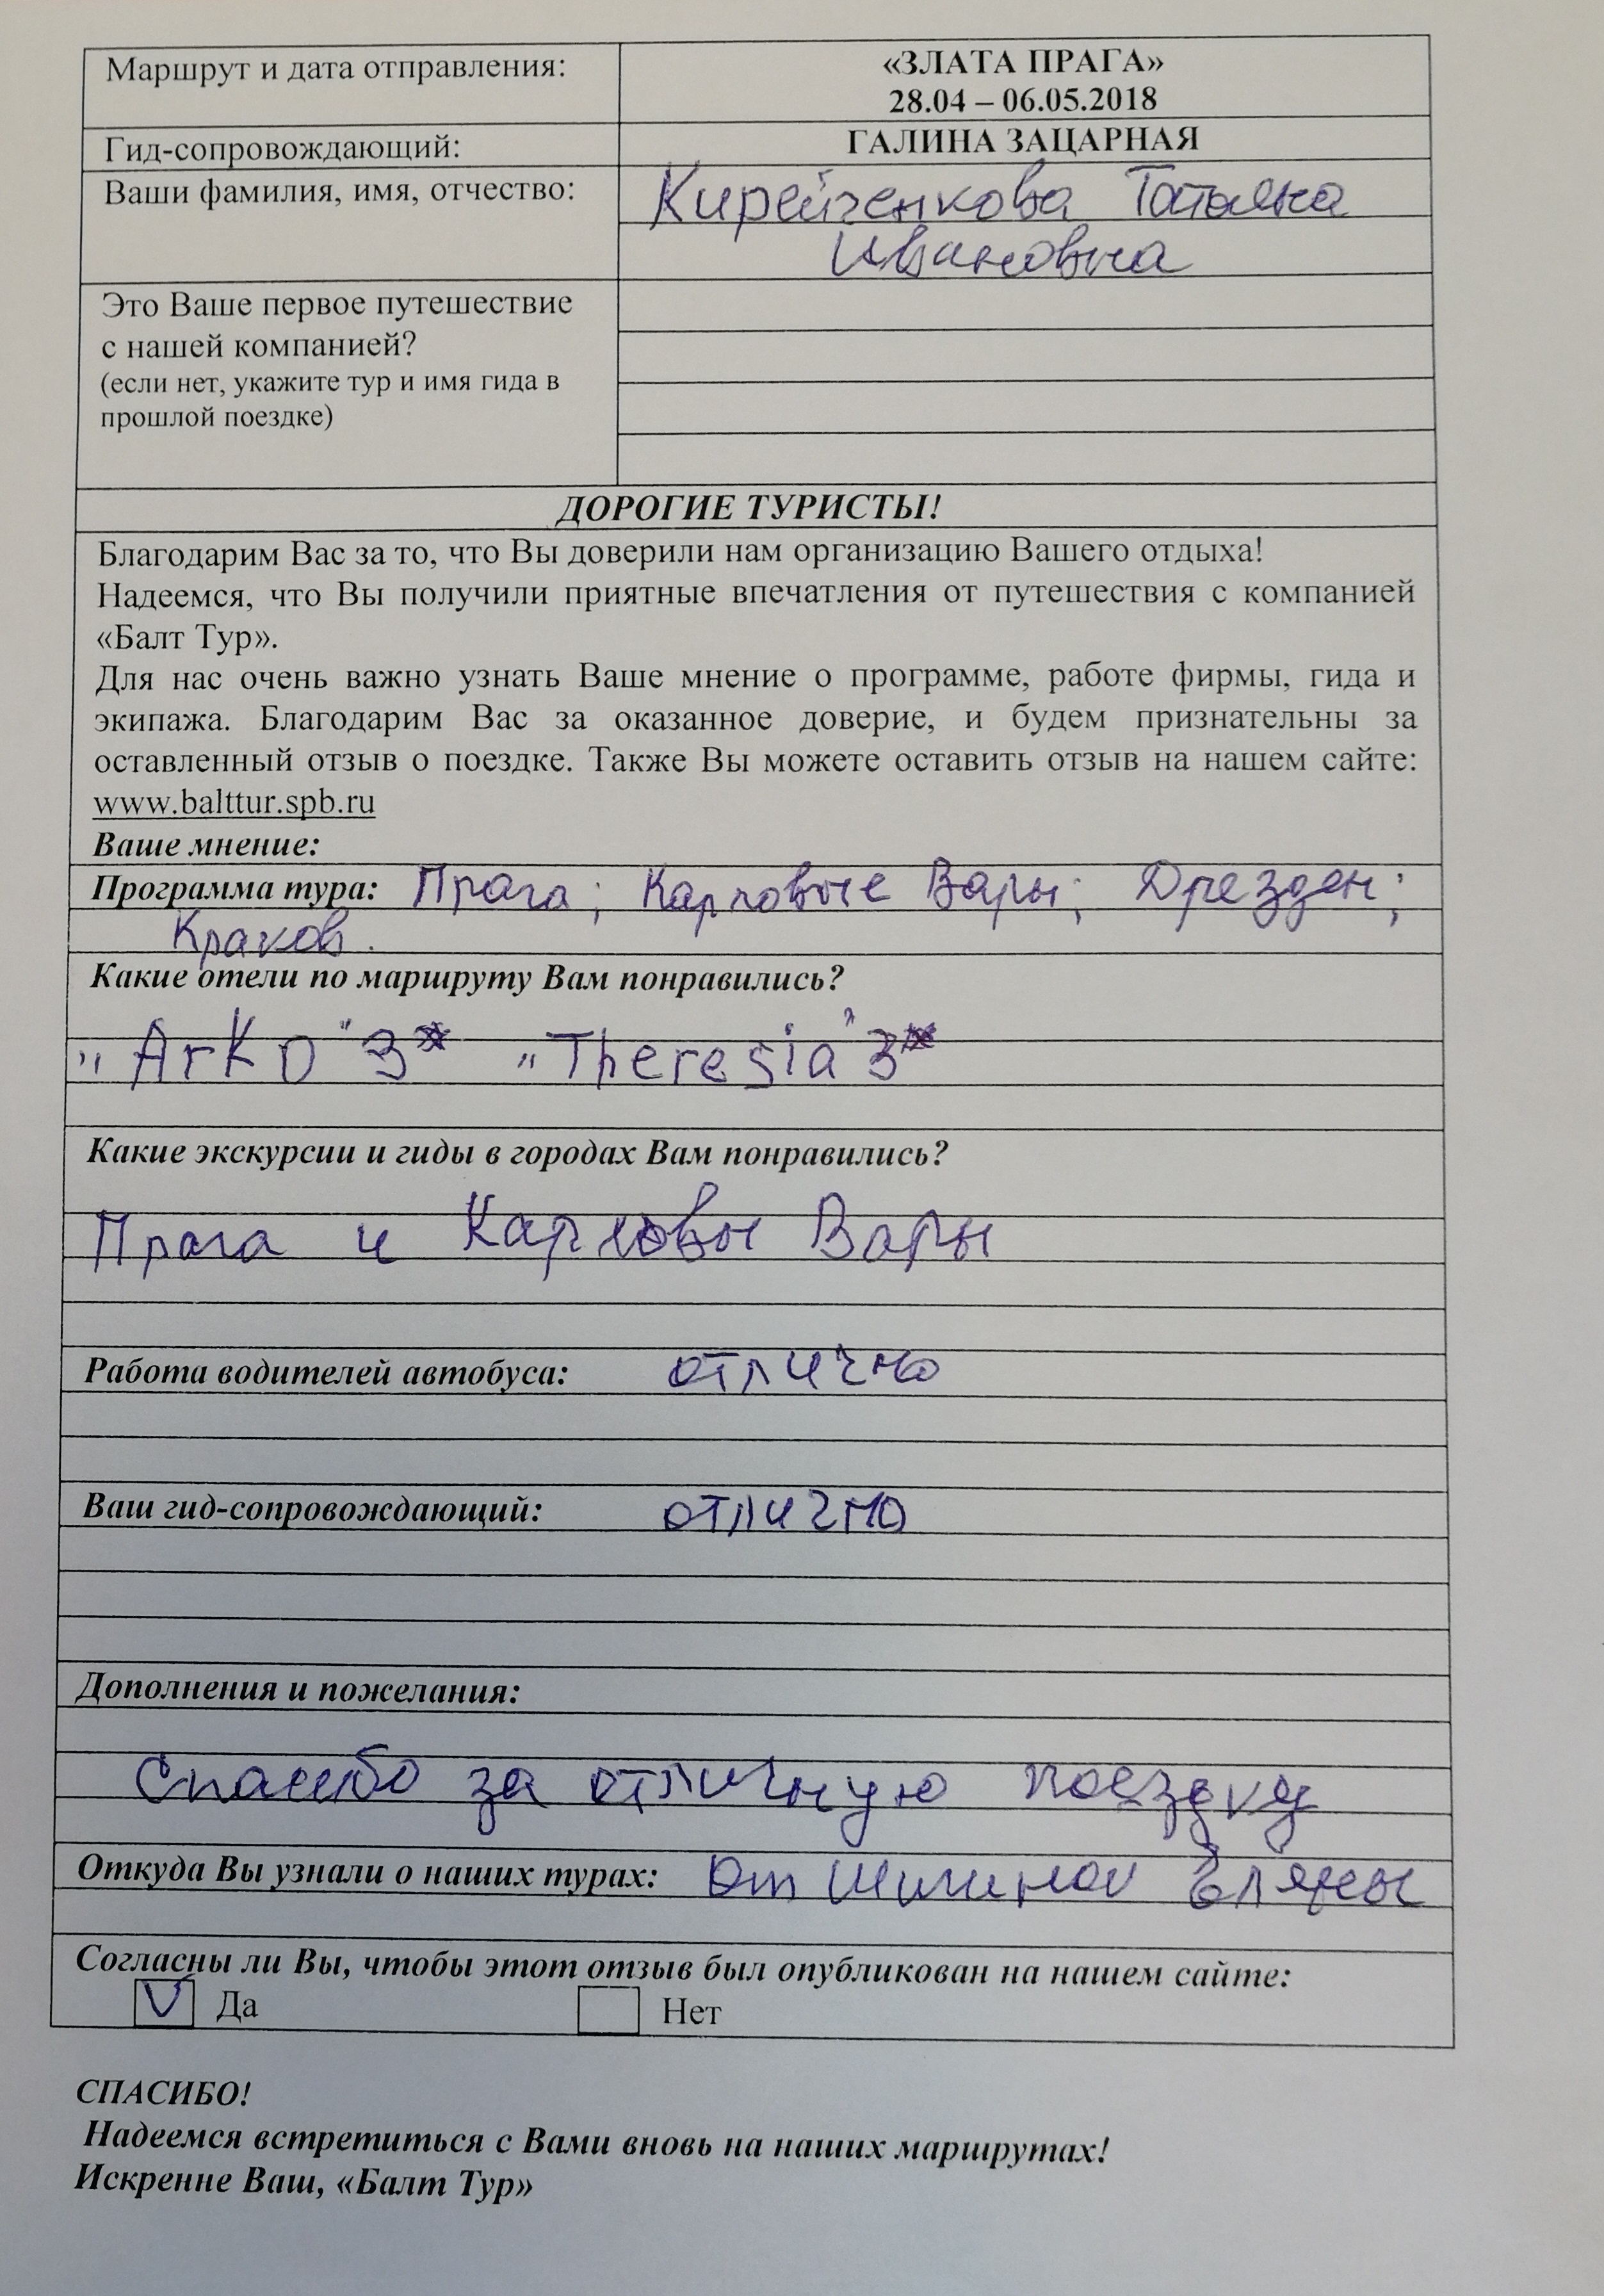 Маршрут и дата отправления:
«ЗЛАТА ПРАГА»
28.04 – 06.05.2018
Гид-сопровождающий:
ГАЛИНА ЗАЦАРНАЯ
Ваши фамилия, имя, отчество:
Кирейченкова Татьяна
Ивановна
Это Ваше первое путешествие
с нашей компанией?
(если нет, укажите тур и имя гида в
прошлой поездке)
ДОРОГИЕ ТУРИСТЫ!
Благодарим Вас за то, что Вы доверили нам организацию Вашего отдыха!
Надеемся, что Вы получили приятные впечатления от путешествия с компанией
«Балт Тур».
Для нас очень важно узнать Ваше мнение о программе, работе фирмы, гида и
экипажа. Благодарим Вас за оказанное доверие, и будем признательны за
оставленный отзыв о поездке. Также Вы можете оставить отзыв на нашем сайте:
www.balttur.spb.ru
Ваше мнение:
Программа тура: Прага; Карловые Вары; Дрезден;
Краков.
Какие отели по маршруту Вам понравились?
"ArKO" 3* "Theresia" 3*
Какие экскурсии и гиды в городах Вам понравились?
Прага и Карловы Вары
Работа водителей автобуса: отлично
Ваш гид-сопровождающий: отлично
Дополнения и пожелания:
Спасибо за отличную поездку
Откуда Вы узнали о наших турах: От
Согласны ли Вы, чтобы этот отзыв был опубликован на нашем сайте:
V Да Нет
СПАСИБО!
Надеемся встретиться с Вами вновь на наших маршрутах!
Искренне Ваш, «Балт Тур»